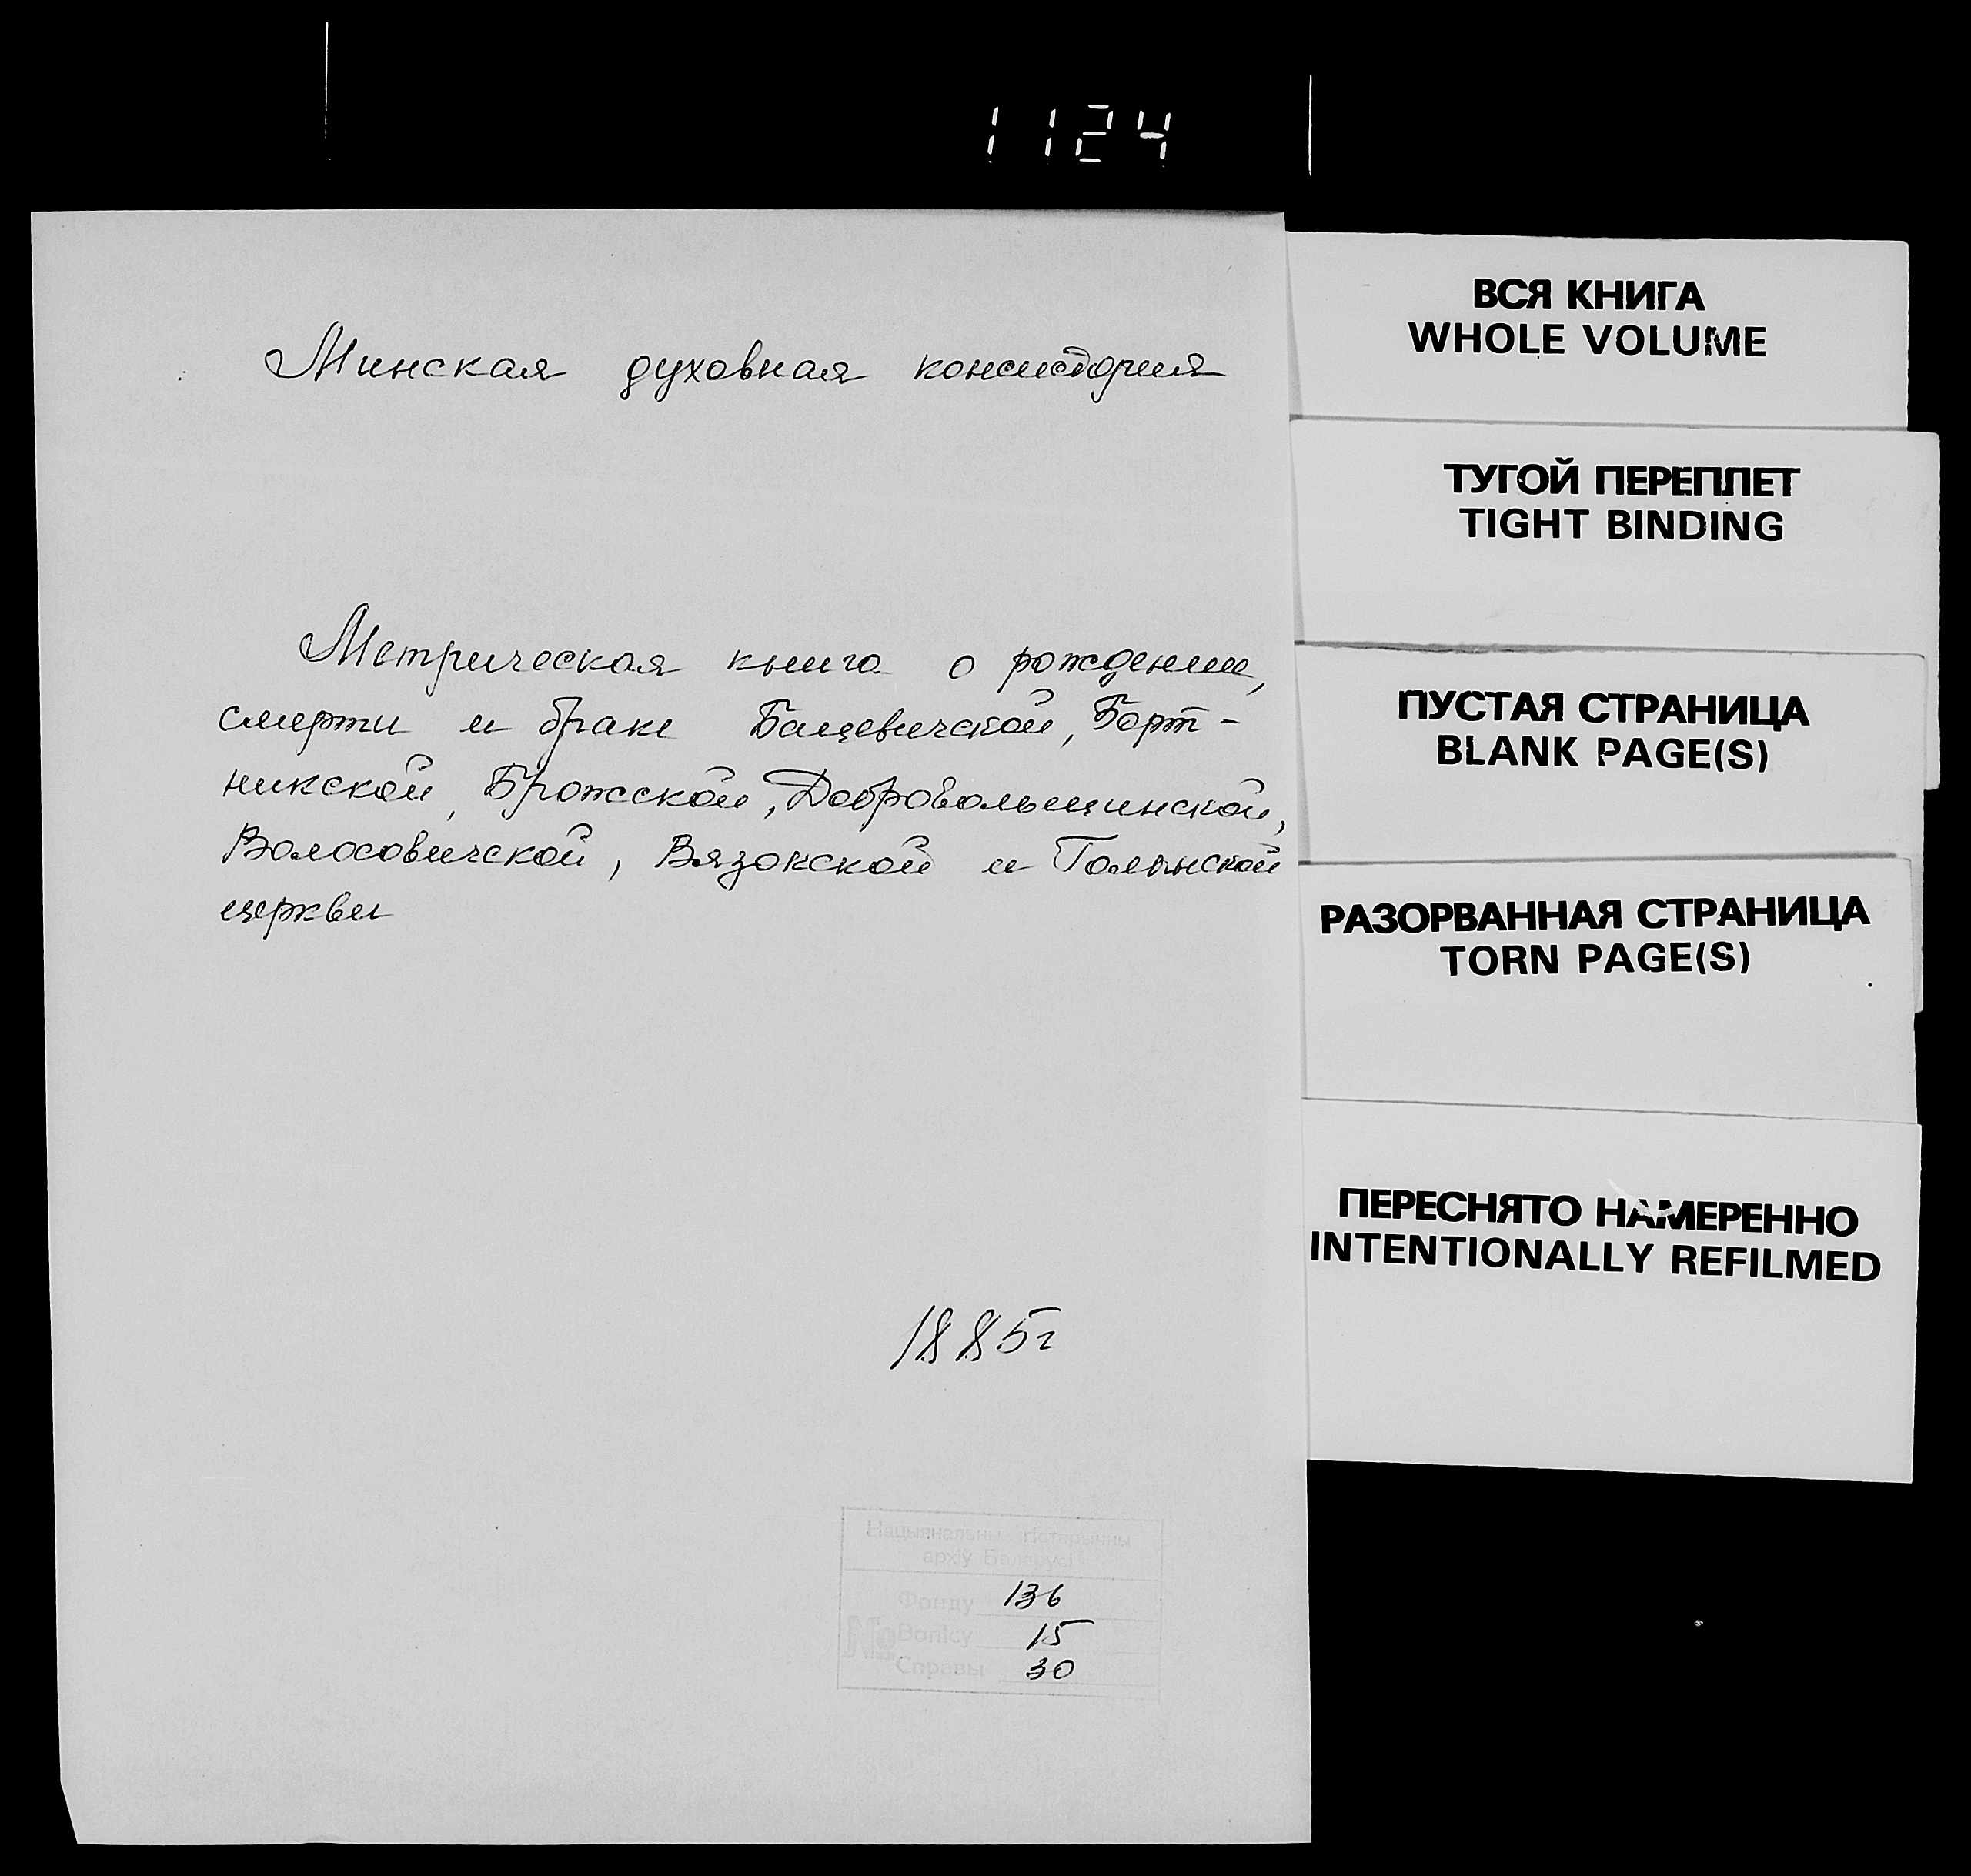 1124
Минская духовная консистория
Метрическая книга о рождении,
смерти и браке Бацевичской, Борт-
никской, Брожской, Добровольщинской,
Волосовичской, Вязокской и Голынской
церкви
1885г
Нацыянальны гістарычны
архіў Беларусі
Фонду 136
№ Вопісу 15
Справы 30
ВСЯ КНИГА
WHOLE VOLUME
ТУГОЙ ПЕРЕПЛЕТ
TIGHT BINDING
ПУСТАЯ СТРАНИЦА
BLANK PAGE(S)
РАЗОРВАННАЯ СТРАНИЦА
TORN PAGE(S)
ПЕРЕСНЯТО НАМЕРЕННО
INTENTIONALLY REFILMED